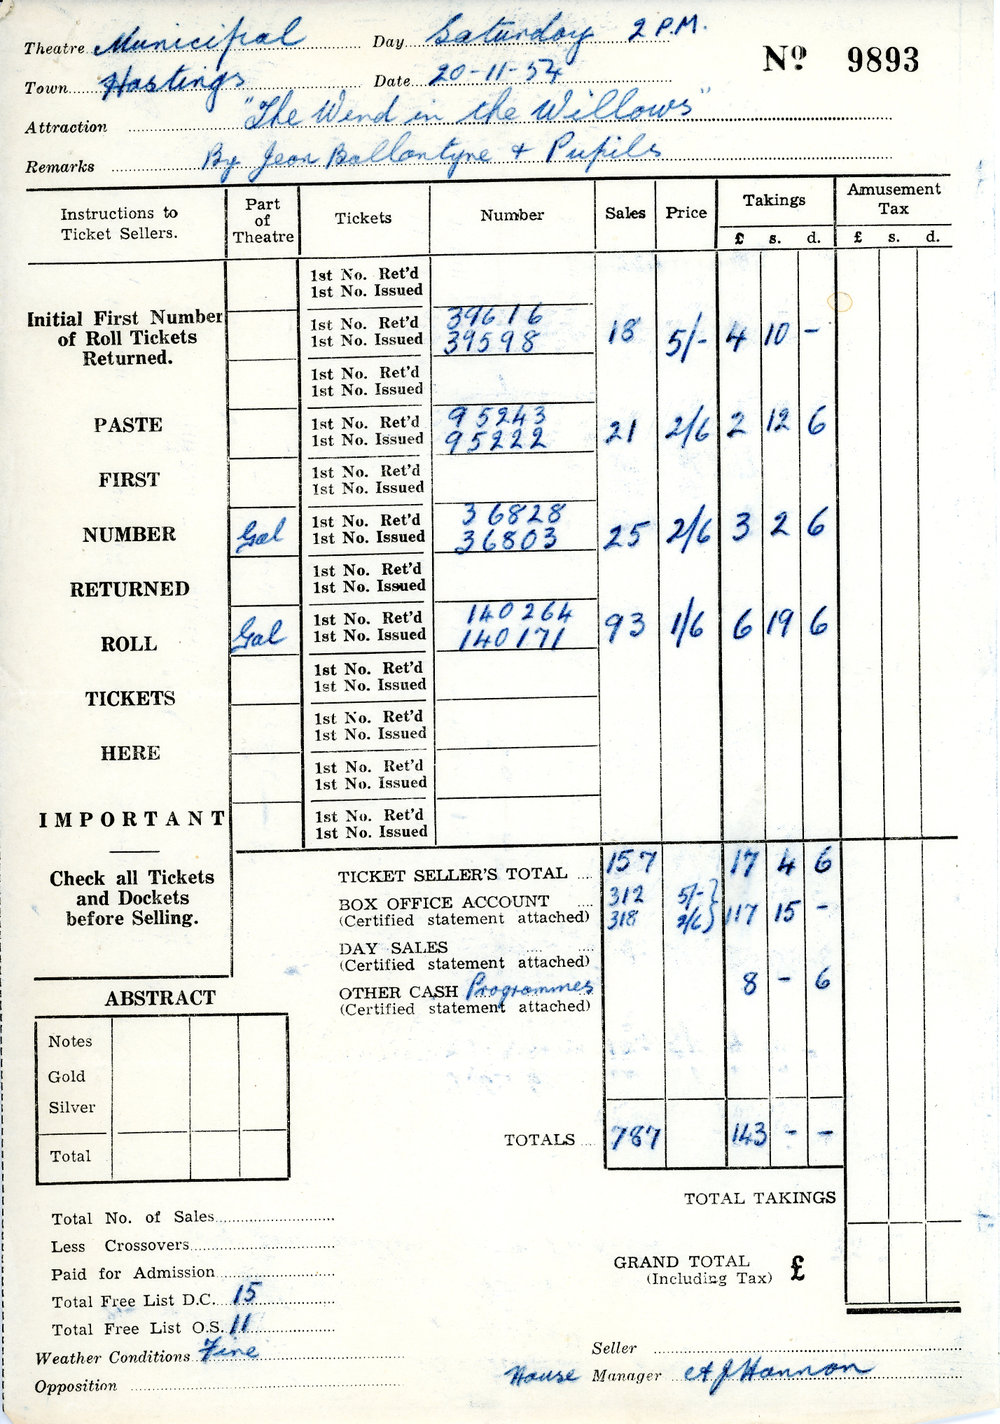 Theatre Municipal Day Saturday 2 P.M.
Nº 9893
Town Hastings Date 20-11-54
Attraction "The Wind in the Willows"
Remarks By Jean Ballantyne + Pupils
Instructions to Ticket Sellers. Part of Theatre Tickets Number Sales Price Takings Amusement Tax
£ s. d. £ s. d.
1st No. Ret'd
1st No. Issued
Initial First Number of Roll Tickets Returned.
1st No. Ret'd 39616
1st No. Issued 39598 18 5/- 4 10 -
1st No. Ret'd
1st No. Issued
PASTE
1st No. Ret'd 95243
1st No. Issued 95222 21 2/6 2 12 6
FIRST
1st No. Ret'd
1st No. Issued
NUMBER
Gal 1st No. Ret'd 36828
1st No. Issued 36803 25 2/6 3 2 6
RETURNED
1st No. Ret'd
1st No. Issued
ROLL
Gal 1st No. Ret'd 140264
1st No. Issued 140171 93 1/6 6 19 6
TICKETS
1st No. Ret'd
1st No. Issued
HERE
1st No. Ret'd
1st No. Issued
1st No. Ret'd
1st No. Issued
IMPORTANT
1st No. Ret'd
1st No. Issued
Check all Tickets
and Dockets
before Selling.
TICKET SELLER'S TOTAL 157 17 4 6
BOX OFFICE ACCOUNT 312 5/-
(Certified statement attached) 318 2/6 117 15 -
DAY SALES
(Certified statement attached)
OTHER CASH Programmes 8 - 6
(Certified statement attached)
ABSTRACT
Notes
Gold
Silver
Total
TOTALS 787 143 - -
TOTAL TAKINGS
GRAND TOTAL £
(Including Tax)
Total No. of Sales
Less Crossovers
Paid for Admission
Total Free List D.C. 15
Total Free List O.S. 11
Weather Conditions Fine
Opposition
Seller
House Manager A J Hannon